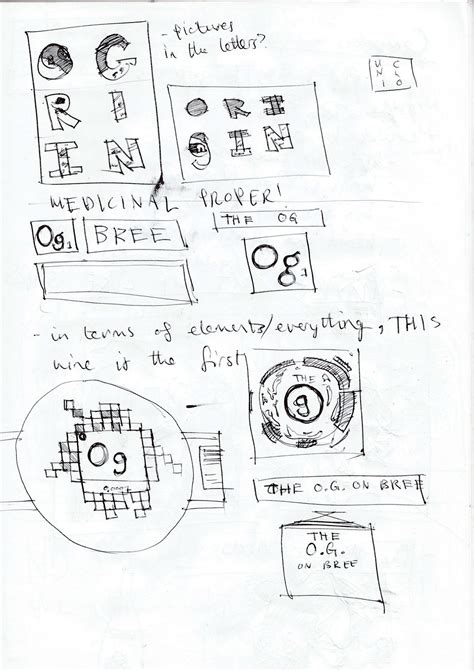 - pictures
in the letters?
O G
R I
I N
O R I
G I N
U C
N L
I O
MEDICINAL PROPER!
Og1 BREE
THE OG
Og1
- in terms of elements/everything, THIS
wine is the first
THE
Og
Og
THE O.G. ON BREE
THE
O.G.
ON BREE